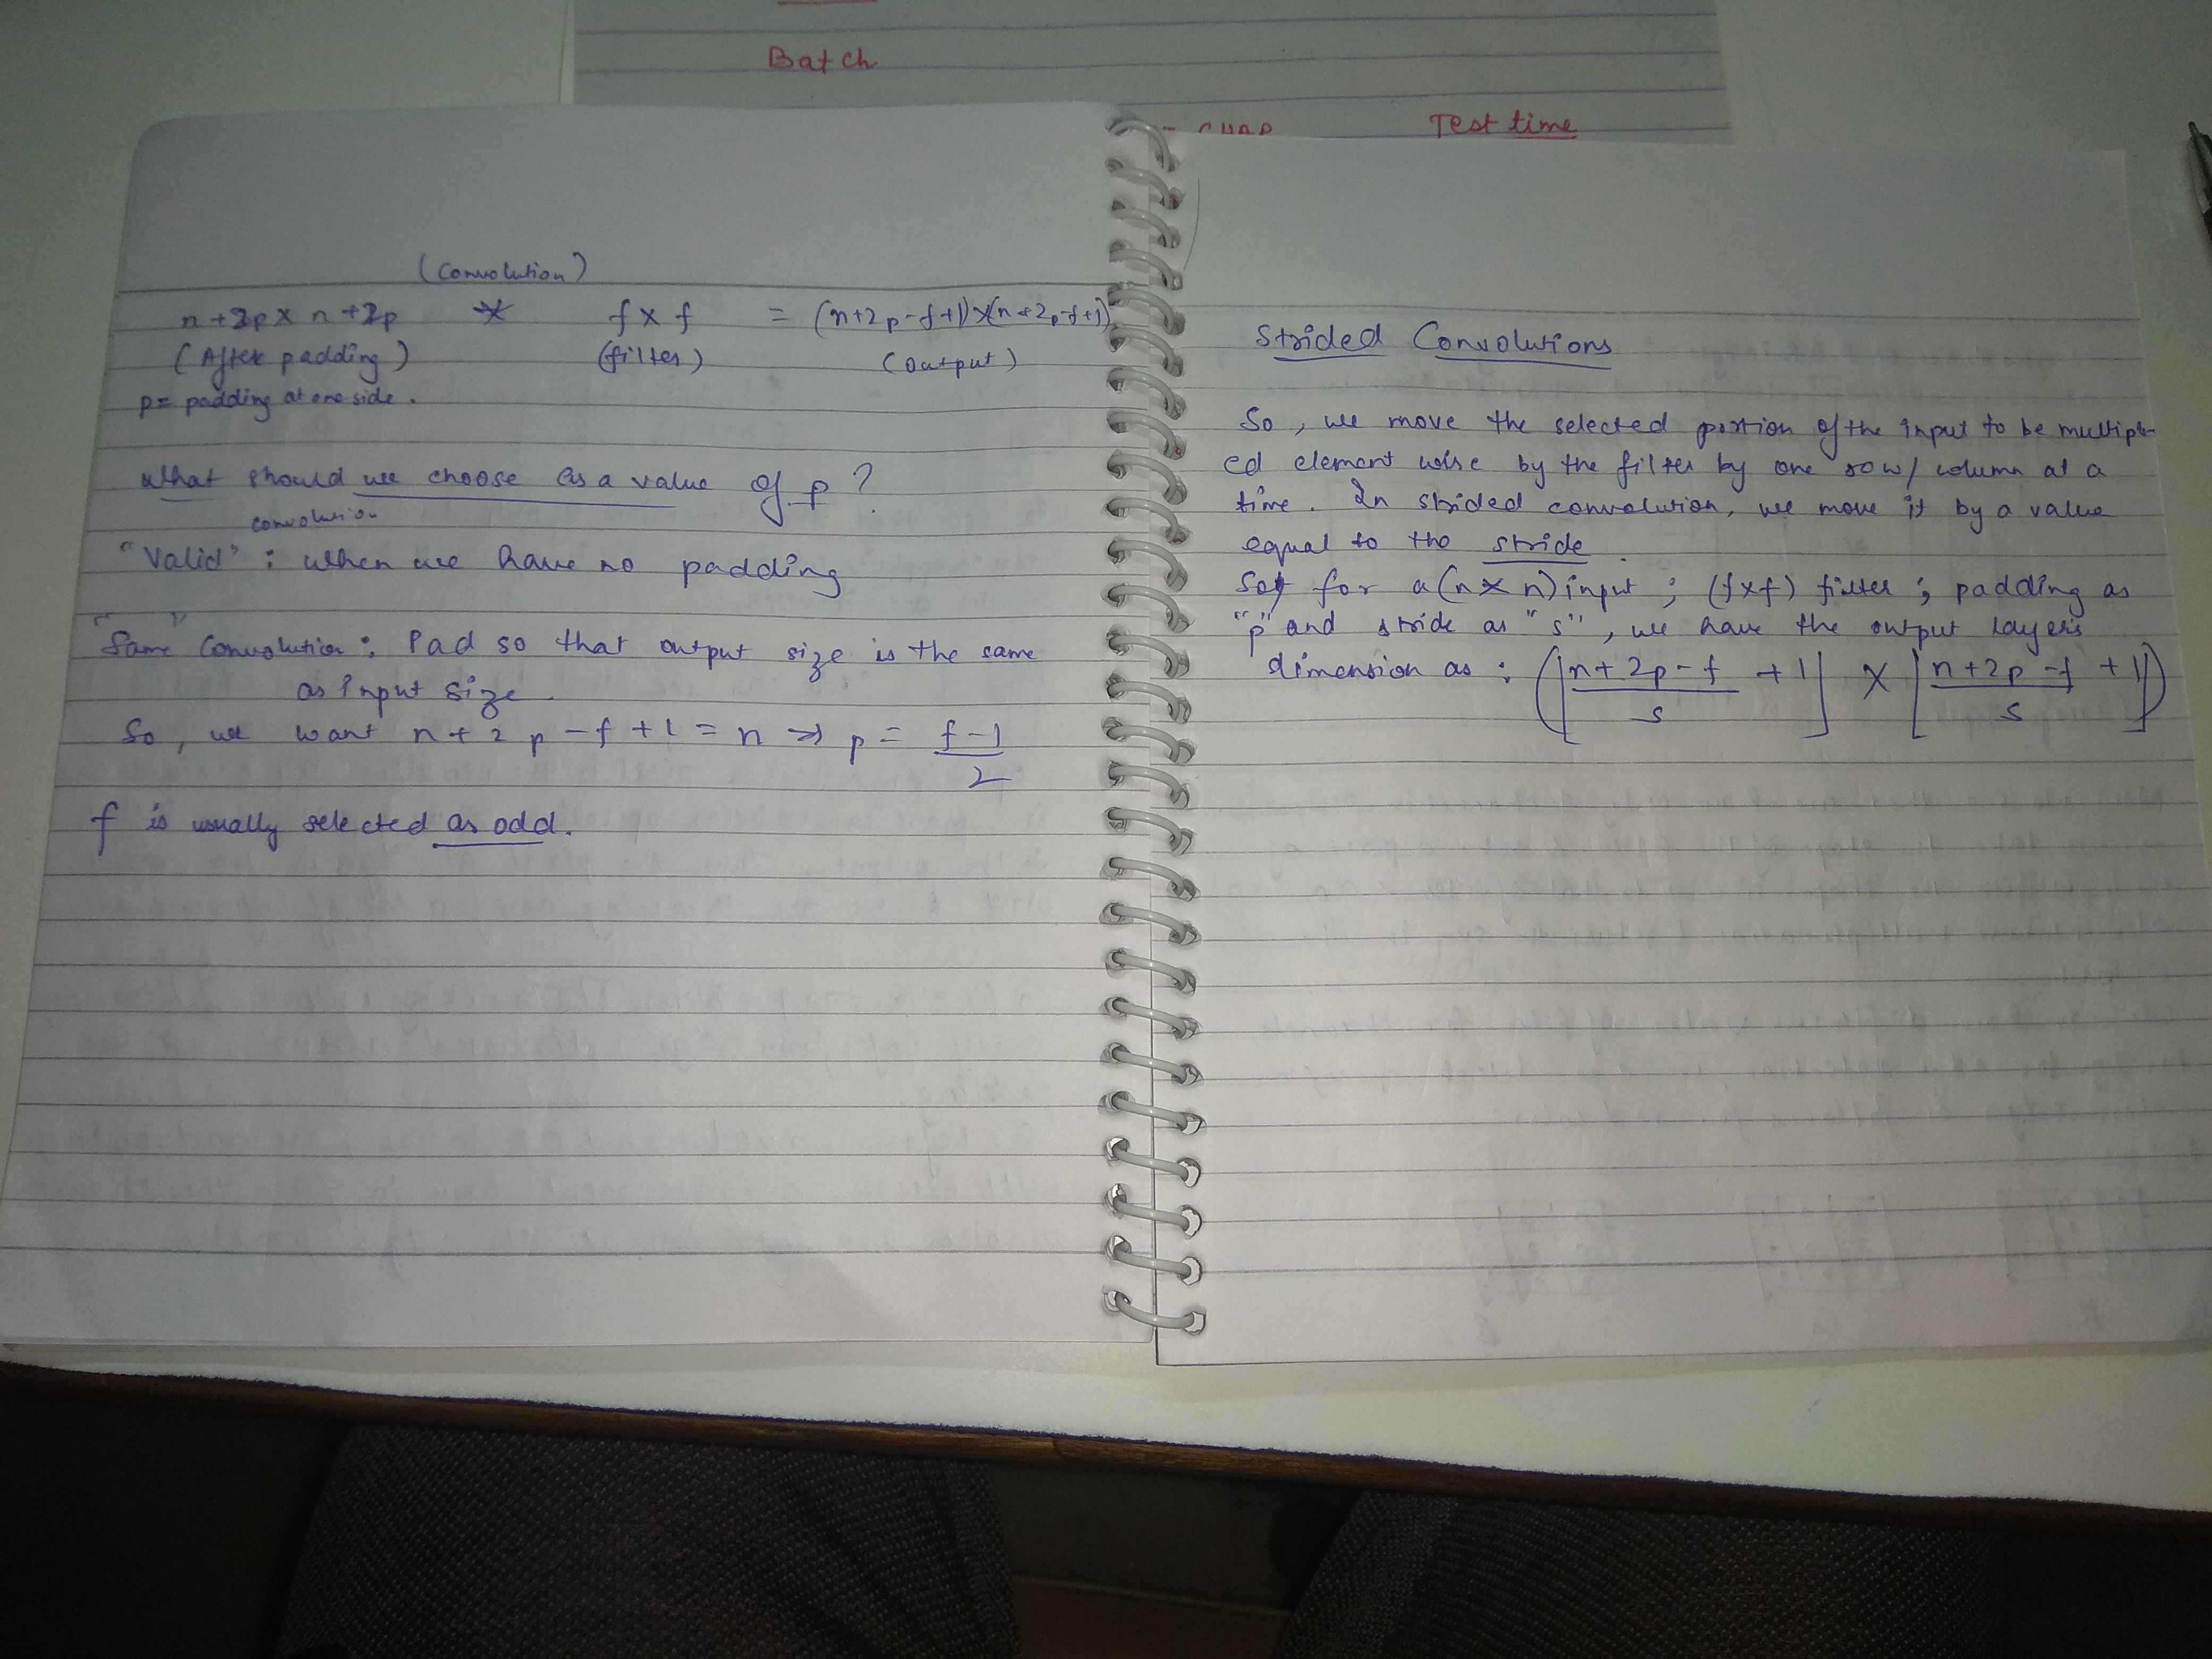 Batch
Test time
(Convolution)
n+2p x n+2p * f x f = (n+2p-f+1)x(n+2p-f+1)
(After padding) (filter) (output)
p= padding at one side.
What should we choose as a value of p?
convolution
"Valid" : when we have no padding
"Same" Convolution: Pad so that output size is the same
as input size.
So, we want n+2p-f+1=n => p = f-1/2
f is usually selected as odd.
Strided Convolutions
So, we move the selected portion of the input to be multipli-
ed element wise by the filter by one row/column at a
time. In strided convolution, we move it by a value
equal to the stride.
So, for a (n x n) input ; (f x f) filter ; padding as
"p" and stride as "s", we have the output layer's
dimension as : (⌊n+2p-f/s +1⌋ X ⌊n+2p-f/s +1⌋)